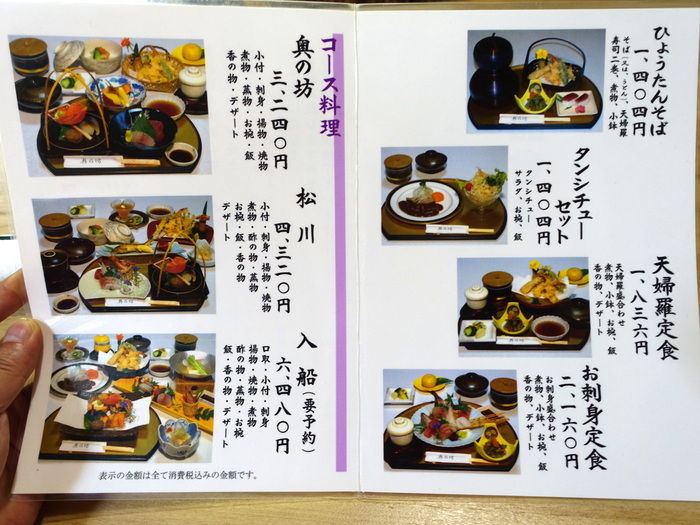 ひょうたんそば
一、四〇四円
そば(又は、うどん)、天婦羅
寿司二巻、煮物、小鉢
タンシチュー
セット
一、四〇四円
タンシチュー
サラダ、お椀、飯
天婦羅定食
一、八三六円
天婦羅盛合わせ
煮物、小鉢、お椀、飯
香の物、デザート
お刺身定食
二、一六〇円
お刺身盛合わせ
煮物、小鉢、お椀、飯
香の物、デザート
コース料理
奥の坊
三、二四〇円
小付・刺身・揚物・焼物
煮物・蒸物・お椀・飯
香の物・デザート
松川
四、三二〇円
小付・刺身・揚物・焼物
煮物・酢の物・蒸物
お椀・飯・香の物
デザート
入船(要予約)
六、四八〇円
口取・小付・刺身
揚物・焼物・煮物
酢の物・蒸物・お椀
飯・香の物・デザート
表示の金額は全て消費税込みの金額です。